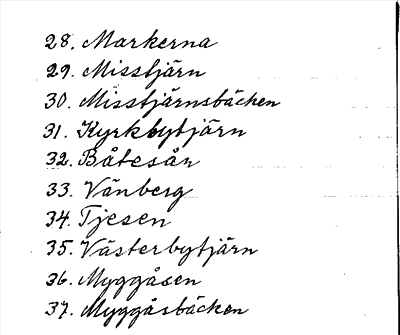 28. Markerna
29. Misstjärn
30. Misstjärnsbäcken
31. Kyrkbytjärn
32. Båtesån
33. Vänberg
34. Tjesen
35. Västerbytjärn
36. Myggåsen
37. Myggåsbäcken